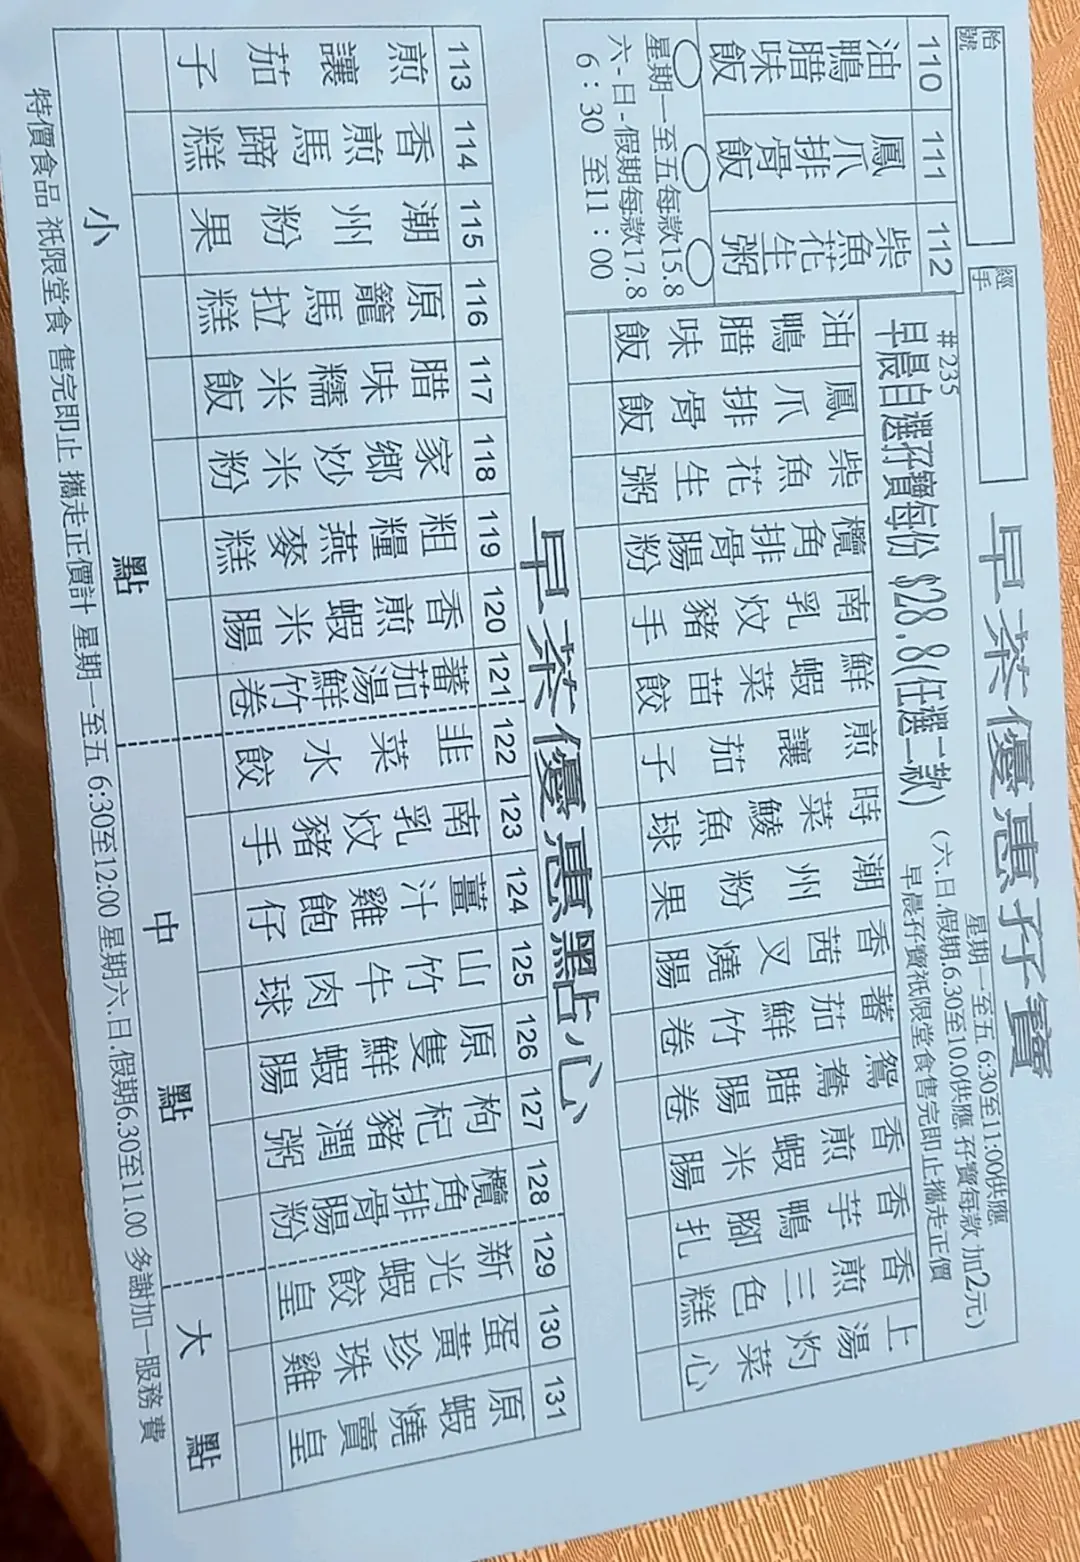 枱號
經手
早茶優惠孖寶
星期一至五 6:30至11:00供應
(六.日.假期.6.30至10.0供應 孖寶每款 加2元)
早晨孖寶祇限堂食售完即止攜走正價
#235
早晨自選孖寶每份 $28.8(任選二款)
110 油鴨腊味飯
111 鳳爪排骨飯
112 柴魚花生粥
星期一至五每款15.8
六-日-假期每款17.8
6:30 至11:00
油鴨腊味飯
鳳爪排骨飯
柴魚花生粥
欖角排骨腸粉
南乳炆豬手
鮮蝦菜苗餃
煎讓茄子
時菜鯪魚球
潮州粉果
香茜叉燒腸
蕃茄鮮竹卷
鴛鴦腊腸卷
香煎蝦米腸
香芋鴨腳扎
香煎三色糕
上湯灼菜心
早茶優惠點心
113 煎讓茄子
114 香煎馬蹄糕
115 潮州粉果
116 原籠馬拉糕
117 腊味糯米飯
118 家鄉炒米粉
119 粗糧燕麥糕
120 香煎蝦米腸
121 蕃茄湯鮮竹卷
122 韭菜水餃
123 南乳炆豬手
124 薑汁雞飽仔
125 山竹牛肉球
126 原隻鮮蝦腸
127 枸杞豬潤粥
128 欖角排骨腸粉
129 新光蝦餃皇
130 蛋黃珍珠雞
131 原蝦燒賣皇
小點 中點 大點
特價食品 祇限堂食 售完即止 攜走正價計 星期一至五 6:30至12:00 星期六.日.假期6.30至11.00 多謝加一服務費